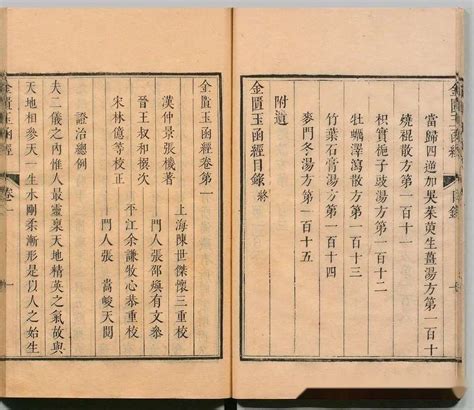 金匱玉函經 目錄
當歸四逆加吳茱萸生薑湯方第一百十
燒裩散方第一百十一
枳實梔子豉湯方第一百十二
牡蠣澤瀉散方第一百十三
竹葉石膏湯方第一百十四
麥門冬湯方第一百十五
附遺
金匱玉函經目錄終
金匱玉函經卷第一
上海陳世傑懷三重校
漢仲景張機著
門人張邵煥有文叅
晉王叔和撰次
平江余謙牧心恭重校
宋林億等校正
門人張嵩峻天閎
證治總例
夫二儀之內惟人最靈稟天地精英之氣故與
天地相參天一生水剛柔漸形是以人之始生
金匱玉函經 卷一 一